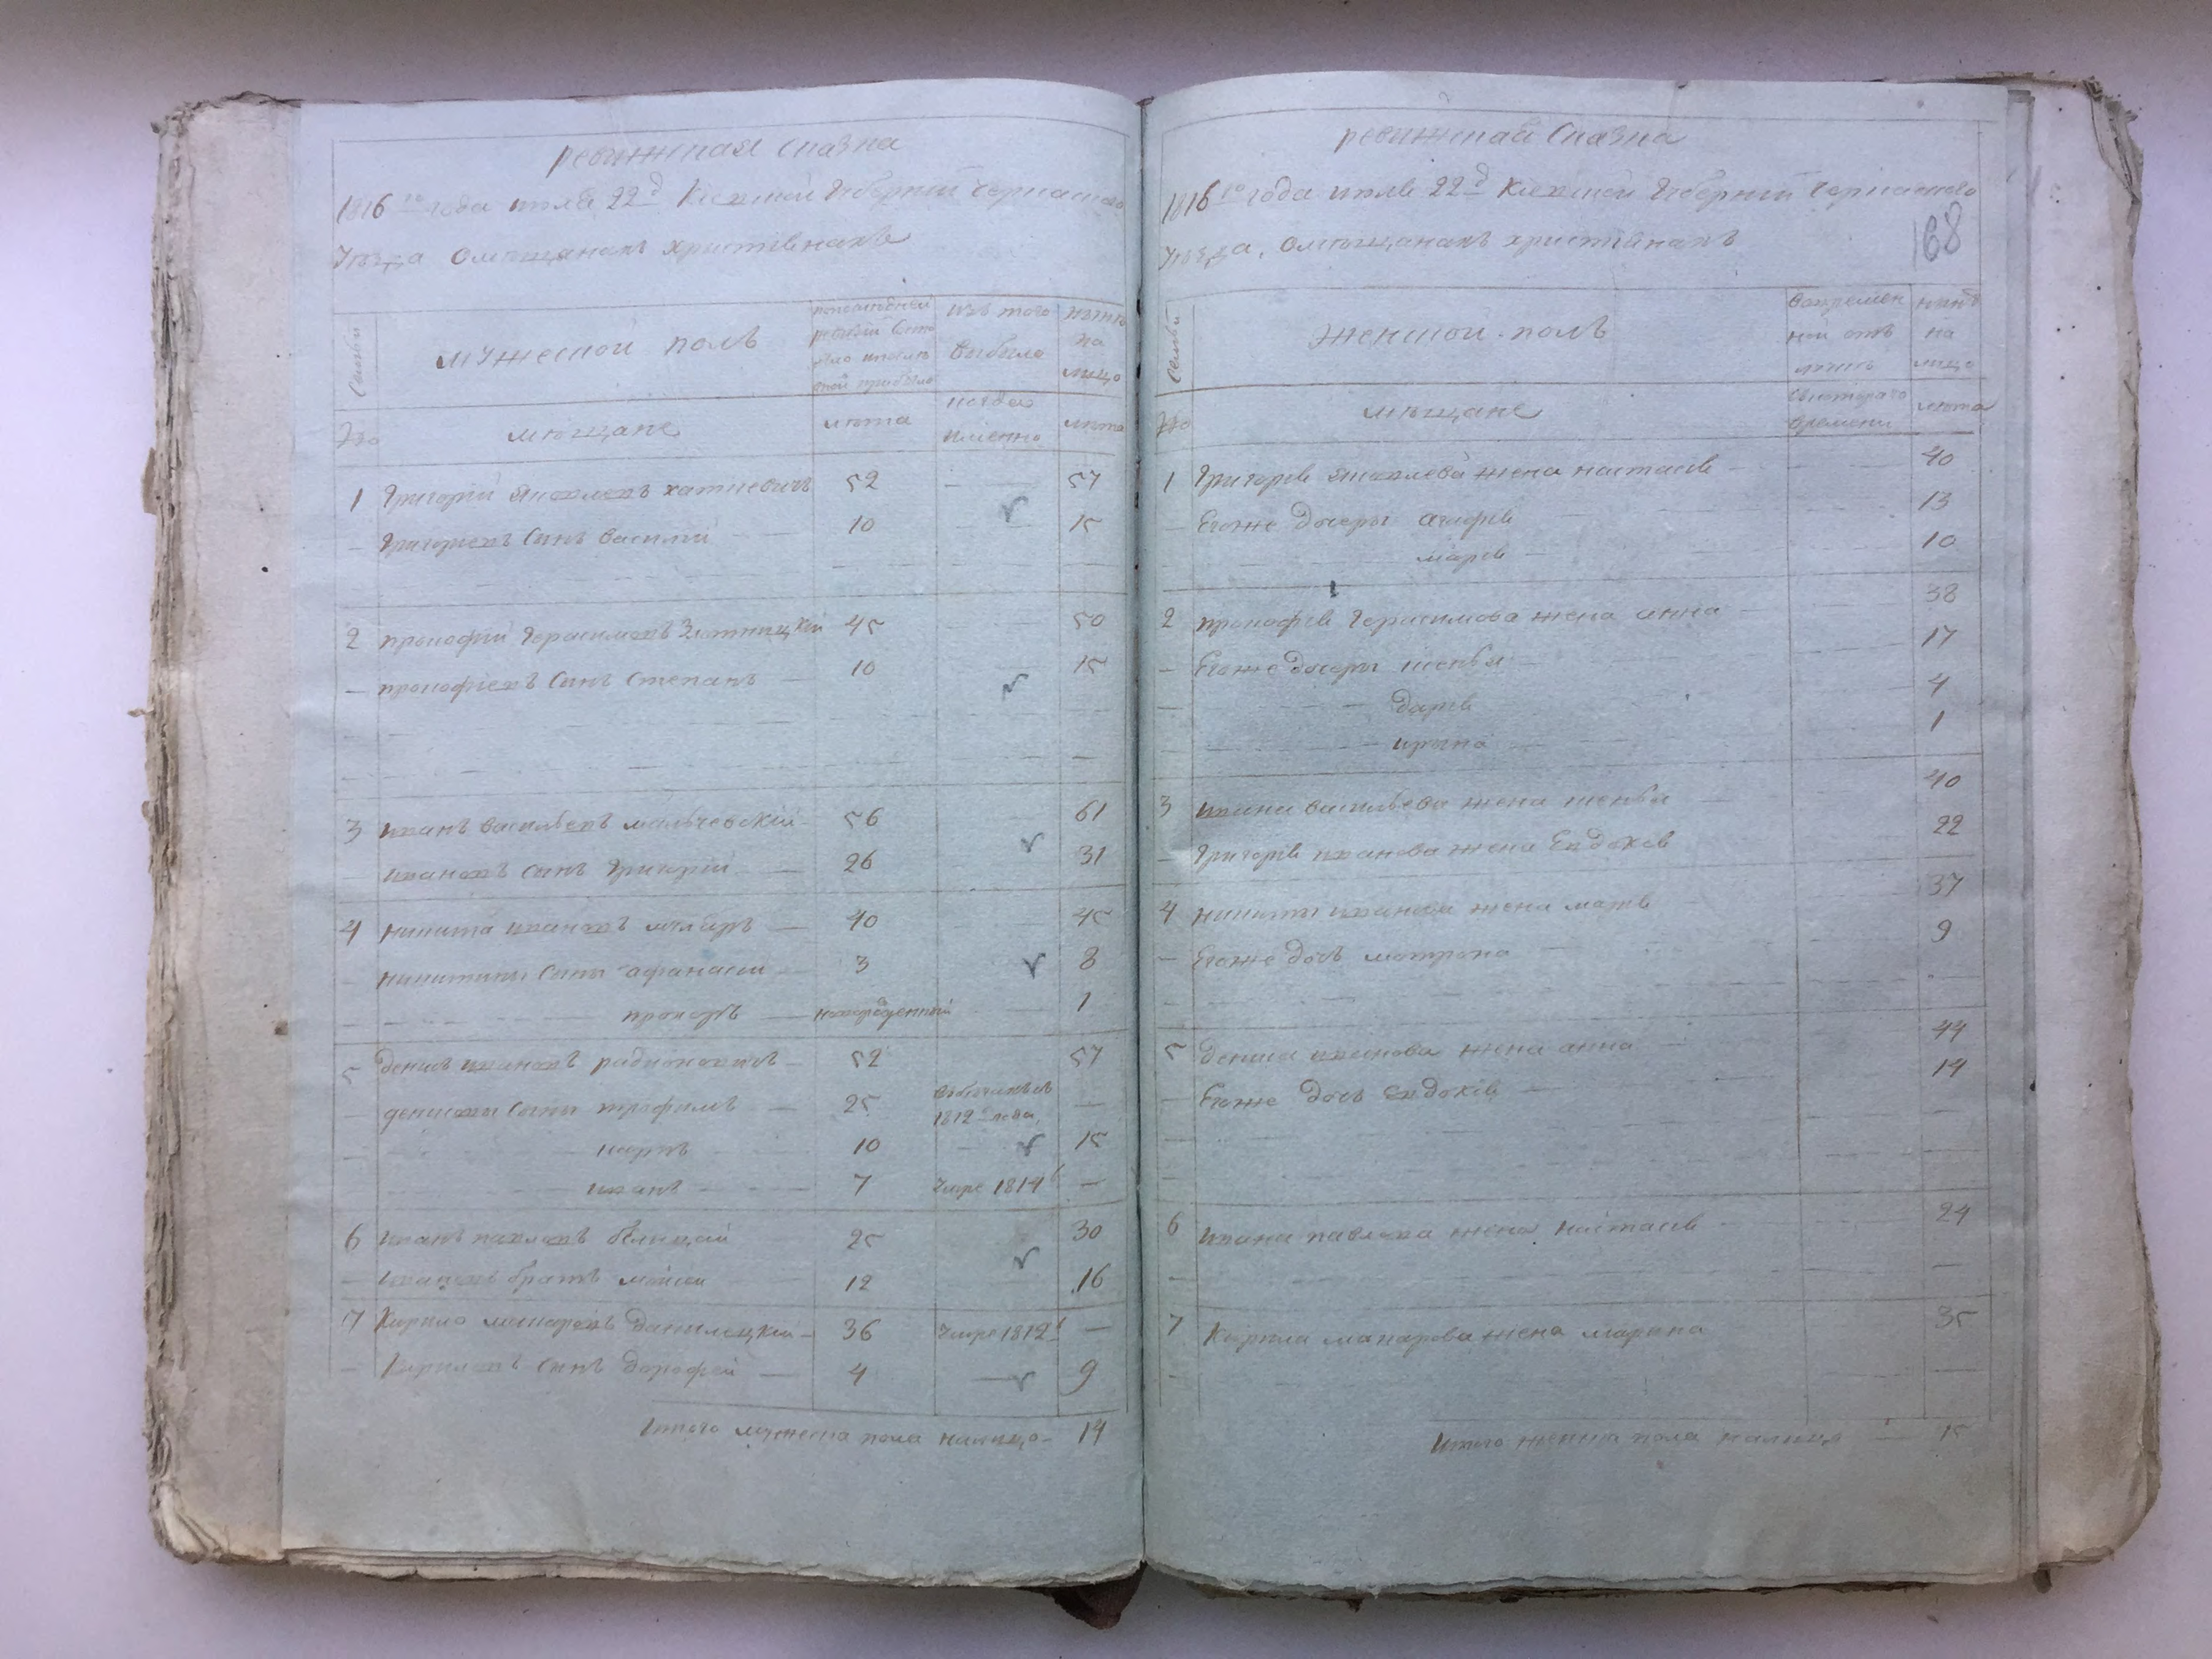 ревижская сказка
1816го года июля 22д Киевской Губернии Черкаского
Уѣзда Омѣщанахъ христіянахъ
Семьи
мужеской полъ
попоследней ревизіи состояло ипослѣ оной прибыло
изъ того выбыло
нынѣ на лицо
№
мѣщане
лѣта
когда имянно
лѣта
1 Григорій Яковлевъ 52 — 57
— Григорьевъ Сынъ Василій — 10 — 15
2 прокофій Герасимовъ 45 50
— прокофіевъ Сынъ Степанъ — 10 15
3 иванъ васильевъ мальчевскій 56 61
ивановъ сынъ Григорій — 26 31
4 никита ивановъ — 40 45
никитины Сыны афанасій 3 8
прокопъ — новорожденный 1
5 денисъ ивановъ радионовичъ 52 57
денисовы Сыны трофимъ — 25 1812 года —
карпъ 10 — 15
иванъ — 7 умре 1814 —
6 иванъ павловъ 25 30
ивановъ братъ 12 16
7 Кирило макаровъ Данилецкій 36 умре 1812 —
— Кириловъ Сынъ Дорофей — 4 — 9
Итого мужеска пола налицо 14
ревижская Сказка
1816го года июля 22д Киевской Губерніи Черкаского
168
Уѣзда, Омѣщанахъ христіянахъ
Семьи
Женской полъ
вовремен
ной отъ
лучкѣ
нынѣ
на
лицо
№
мѣщане
скотораго
времени
лѣта
1 Григорія Яковлева жена настасія — 40
Егоже дочеры агафія 13
марія — 10
2 прокофія Герасимова жена анна — 38
— Егоже дочеры 17
— дарія 4
— ирына 1
3 ивана васильева жена 40
— Григорія иванова жена Евдокія 22
4 никиты иванова жена 37
— Егоже дочь мотрона 9
5 дениса иванова жена анна 44
Егоже дочь евдокія — 14
6 ивана павлова жена настасія 24
7 Кирила макарова жена марина 35
Итого женска пола налицо — 15